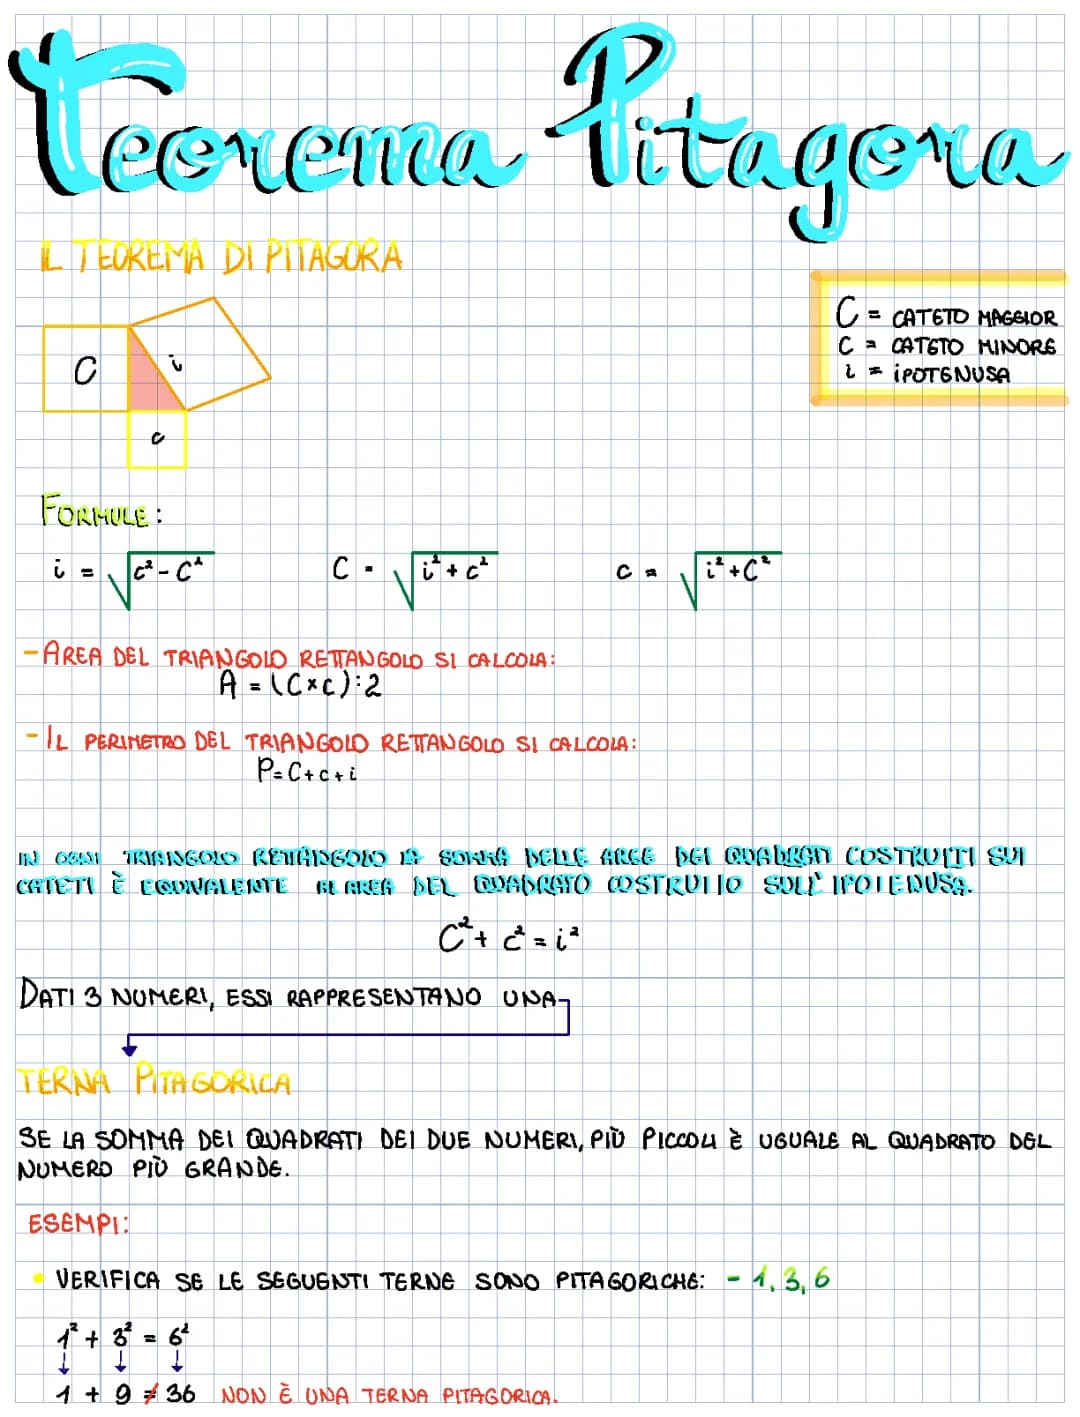 Teorema Pitagora
IL TEOREMA DI PITAGORA
C = CATETO MAGGIOR
c = CATETO MINORE
i = iPOTENUSA
C
i
c
FORMULE:
i = √c² - C²
C = √i² + c²
c = √i² + C²
- AREA DEL TRIANGOLO RETTANGOLO SI CALCOLA:
A = (C×c):2
- IL PERIMETRO DEL TRIANGOLO RETTANGOLO SI CALCOLA:
P = C + c + i
IN OGNI TRIANGOLO RETTANGOLO LA SOMMA DELLE AREE DEI QUADRATI COSTRUITI SUI
CATETI È EQUIVALENTE AL AREA DEL QUADRATO COSTRUITO SULL'IPOTENUSA.
C² + c² = i²
DATI 3 NUMERI, ESSI RAPPRESENTANO UNA
TERNA PITAGORICA
SE LA SOMMA DEI QUADRATI DEI DUE NUMERI, PIÙ PICCOLI È UGUALE AL QUADRATO DEL
NUMERO PIÙ GRANDE.
ESEMPI:
• VERIFICA SE LE SEGUENTI TERNE SONO PITAGORICHE: - 1, 3, 6
1² + 3² = 6²
1 + 9 ≠ 36 NON È UNA TERNA PITAGORICA.